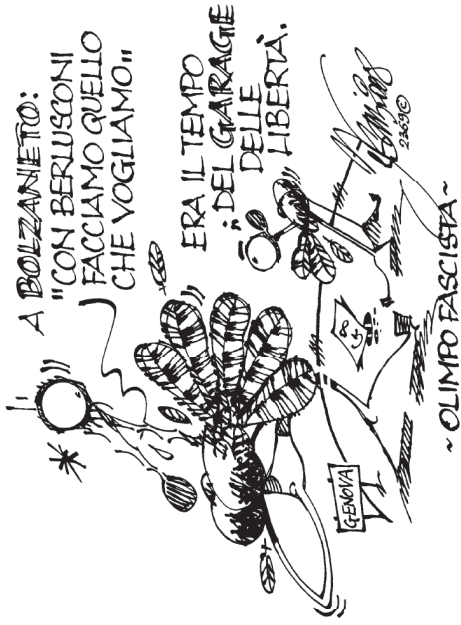 A BOLZANETO:
"CON BERLUSCONI
FACCIAMO QUELLO
CHE VOGLIAMO„
ERA IL TEMPO
DEL GARAGE
DELLE
LIBERTÀ.
2369©
G8
GENOVA
~OLIMPO FASCISTA~